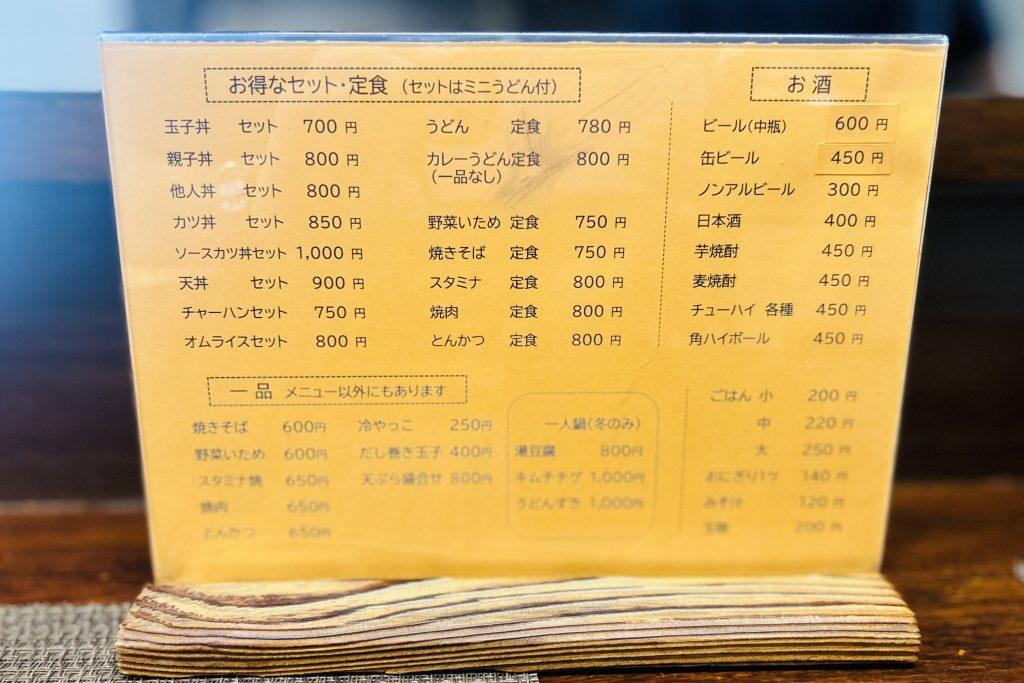 お得なセット・定食 (セットはミニうどん付)
玉子丼 セット 700 円
親子丼 セット 800 円
他人丼 セット 800 円
カツ丼 セット 850 円
ソースカツ丼セット 1,000 円
天丼 セット 900 円
チャーハンセット 750 円
オムライスセット 800 円
うどん 定食 780 円
カレーうどん定食 800 円
(一品なし)
野菜いため 定食 750 円
焼きそば 定食 750 円
スタミナ 定食 800 円
焼肉 定食 800 円
とんかつ 定食 800 円
お酒
ビール(中瓶) 600 円
缶ビール 450 円
ノンアルビール 300 円
日本酒 400 円
芋焼酎 450 円
麦焼酎 450 円
チューハイ 各種 450 円
角ハイボール 450 円
一品 メニュー以外にもあります
焼きそば 600円
野菜いため 600円
スタミナ焼 650円
焼肉 650円
とんかつ 650円
冷やっこ 250円
だし巻き玉子 400円
天ぷら盛合せ 800円
一人鍋(冬のみ)
湯豆腐 800円
キムチチゲ 1,000円
うどんすき 1,000円
ごはん 小 200 円
中 220 円
大 250 円
おにぎり1ケ 140 円
みそ汁 120 円
200 円